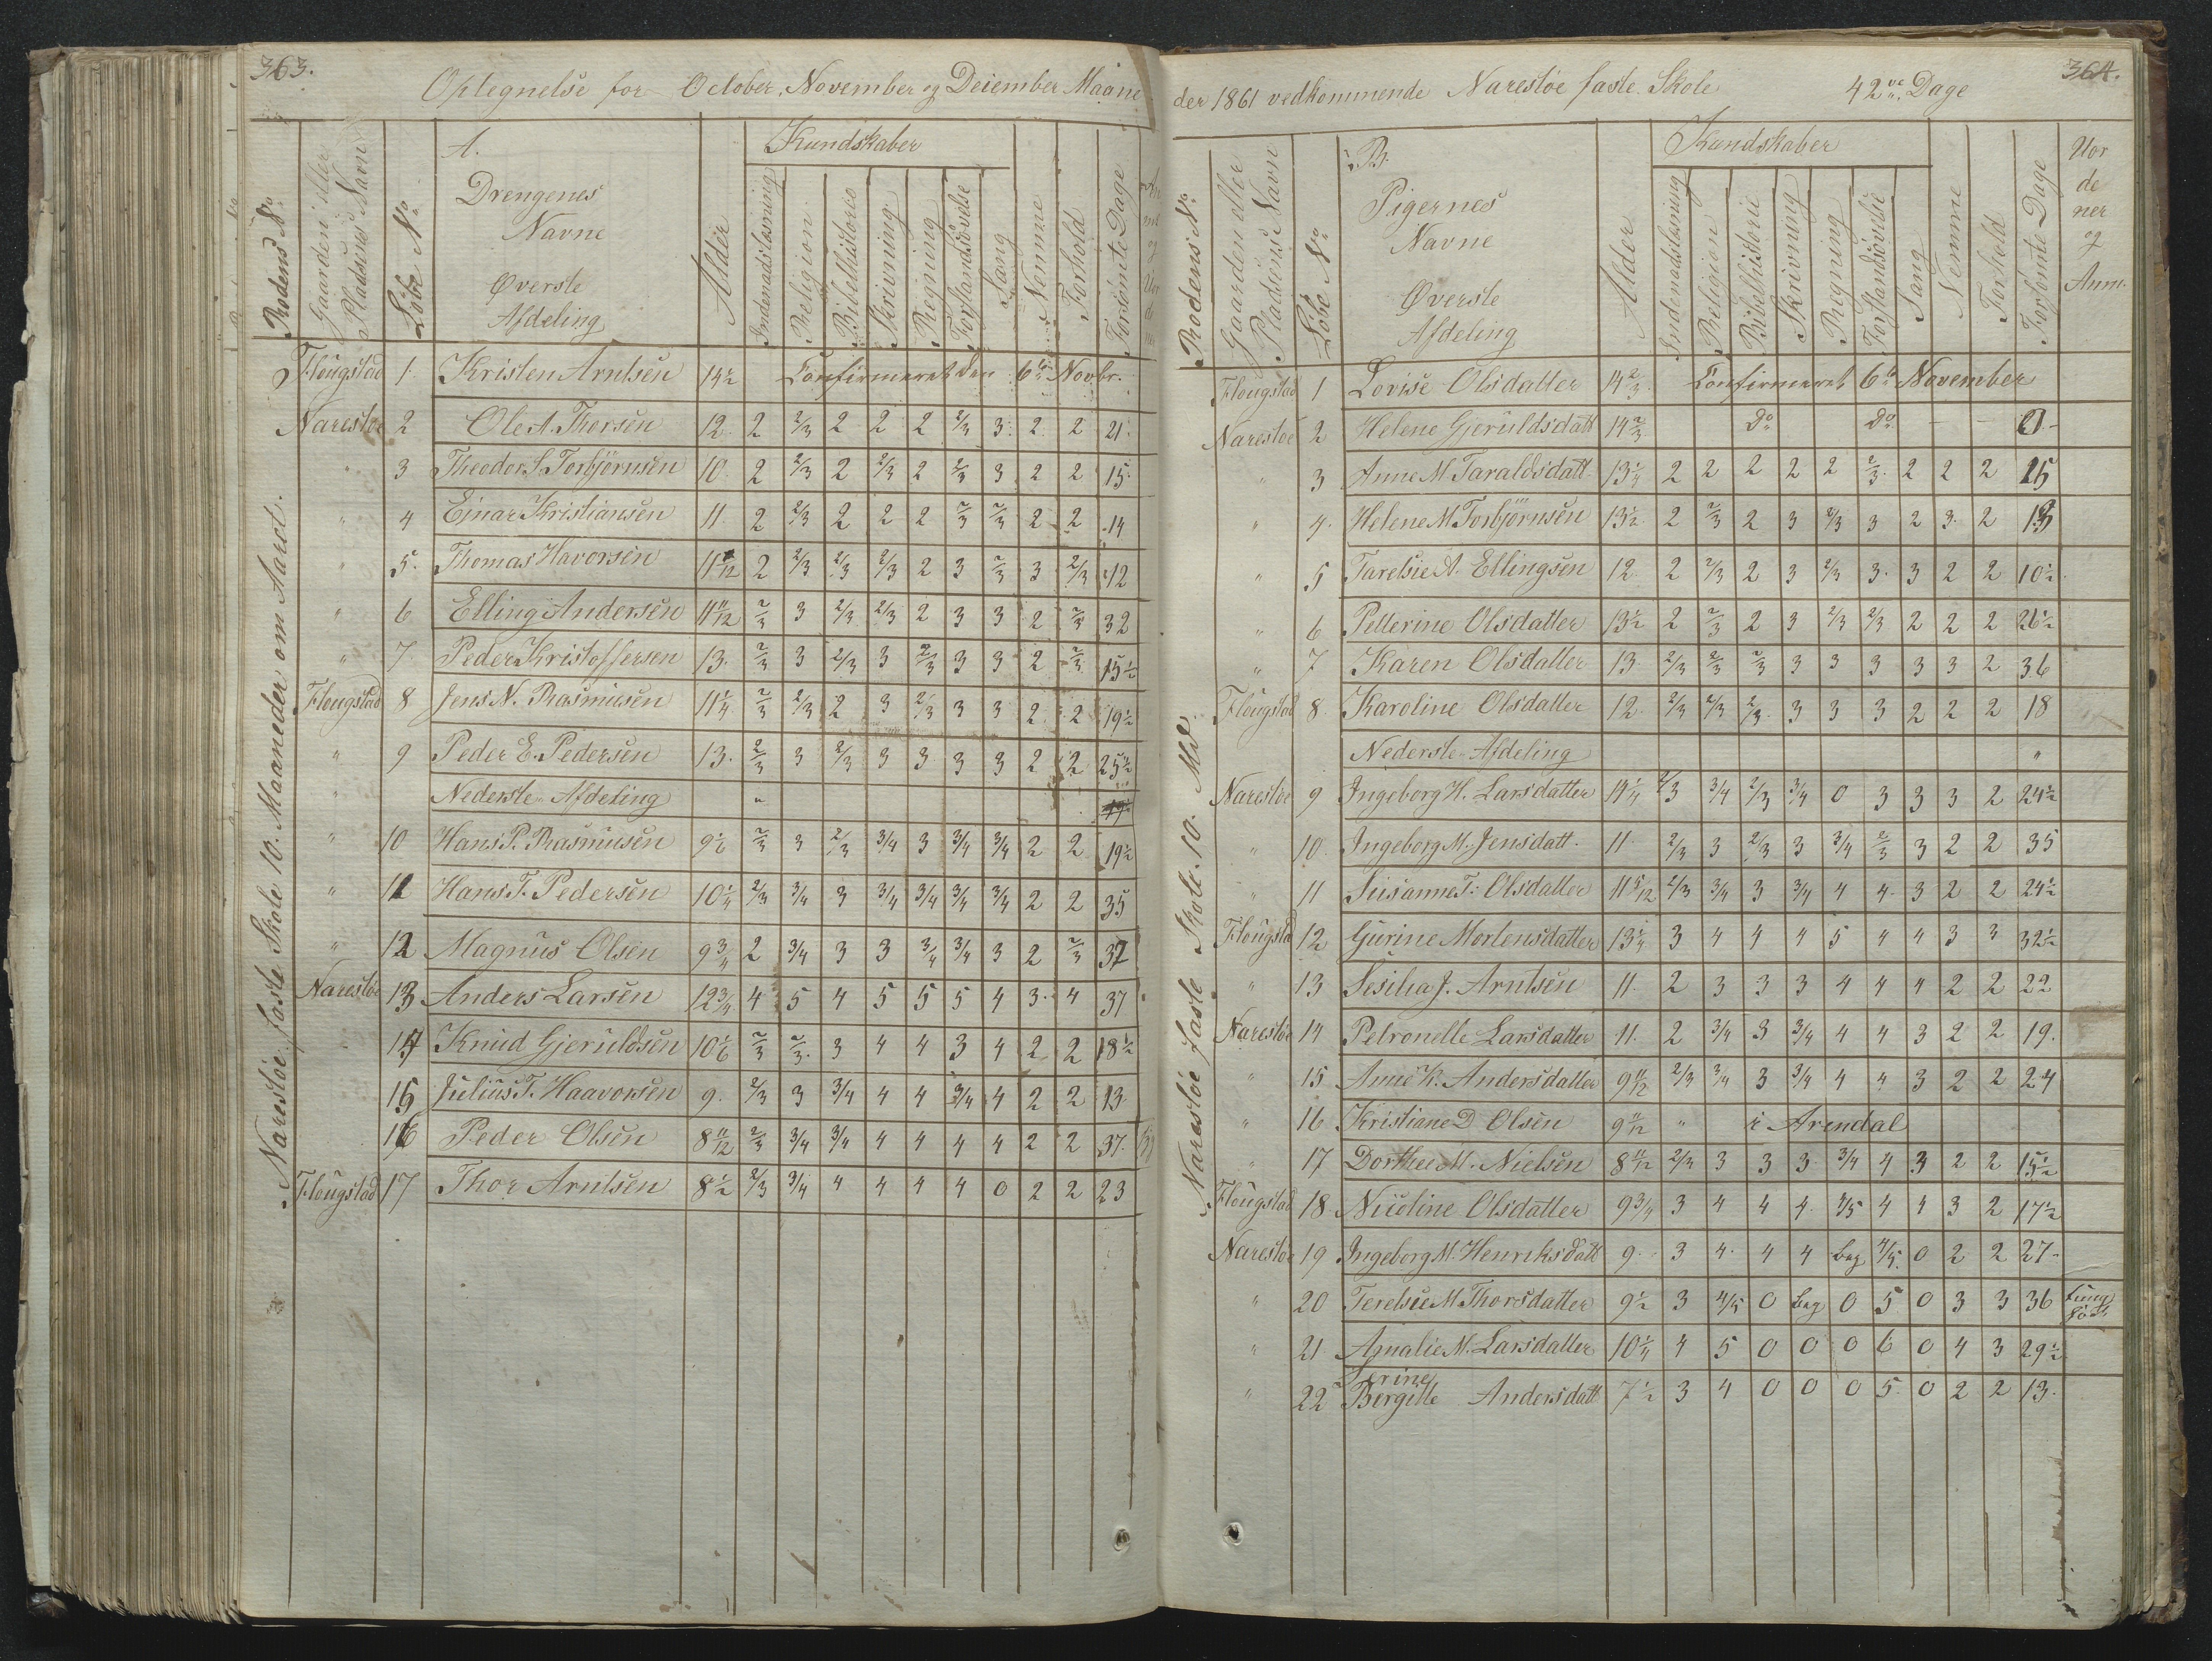 363.
Optegnelse for October, November og Deiember Maane
Rodens No.
Gaardens eller Pladsens Navn
Löbe No.
A. Drengenes Navne Øverste Afdeling
Alder
Kundskaber
Indenadslæsning
Religion
Bibelhistorie
Skrivning
Regning
Forstandsövelse
Sang
Nemme
Forhold
Forsömte Dage
Narestöe faste Skole 10. Maaneder om Aaret.
Flougstad 1 Kristen Arntsen 14½ Confirmeret den 6te Novbr.
Narestöe 2 Ole A. Thorsen 12 2 2/3 2 2 2 2/3 3 2 2 21
" 3 Theodor S. Torbjörnsen 10 2 2/3 2 2/3 2 2/3 3 2 2 15
" 4 Ejnar Kristiansen 11 2 2/3 2 2 2 2/3 2/3 2 2 14
" 5 Thomas Havorsen 2 2/3 2/3 2/3 2 3 2/3 3 2/3 12
" 6 Elling Andersen 11 11/12 2/3 3 2/3 2/3 2 3 3 2 2/3 32
" 7 Peder Kristoffersen 13 2/3 3 2/3 3 2/3 3 3 2 2/3 15½
Flougstad 8 Jens N. Rasmusen 11¼ 2/3 2/3 2 3 2/3 3 3 2 2 19½
" 9 Peder E. Pedersen 13. 2/3 3 2/3 3 3 3 3 2 2 25½
" Nederste Afdeling "
" 10 Hans P. Rasmusen 2/3 3 2/3 3/4 3 3/4 3/4 2 2 19½
" 11 Hans T. Pedersen 10¼ 2/3 3/4 3 3/4 3/4 3/4 3/4 2 2 35
" 12 Magnus Olsen 9¾ 2 3/4 3 3 3/4 3/4 3 2 2/3 37
Narestöe 13 Anders Larsen 12¾ 4 5 4 5 5 5 4 3 4 37
14 Knud Gjeruldsen 10 1/6 2/3 2/3 3 4 4 3 4 2 2 18½
15 Julius T. Haavorsen 9. 2/3 3 3/4 4 4 3/4 4 2 2 13
16 Peder Olsen 8 11/12 2/3 3/4 3/4 4 4 4 4 2 2 37
Flougstad 17 Thor Arntsen 8½ 2/3 3/4 4 4 4 4 0 2 2 23
364.
der 1861 vedkommende Narestöe faste Skole 42ve Dage
Rodens No.
Gaarden eller Pladsens Navn
Löbe No.
B. Pigernes Navne Øverste Afdeling
Alder
Kundskaber
Indenadslæsning
Religion
Bibelhistorie
Skrivning
Regning
Forstandsövelse
Sang
Nemme
Forhold
Forsömte Dage
Uor de ner og Anm.
Narestöe faste Skole. 10. Md
Flougstad 1 Lovise Olsdatter 14 2/3 Confirmeret 6te November
Narestöe 2 Helene Gjeruldsdatt 14 2/3 Do Do - - 0
" 3 Anne M. Taraldsdatt 2 2 2 2 2 2/3 2 2 2 15
" 4 Helene M. Torbjörnsen 13½ 2 2/3 2 3 2/3 3 2 3 2
" 5 Tarelsie A. Ellingsen 12 2 2/3 2 3 2/3 3 3 2 2 10½
" 6 Petterine Olsdatter 13½ 2 2/3 2 3 2/3 2/3 2 2 2 26½
" 7 Karen Olsdatter 13 2/3 2/3 2/3 3 3 3 3 3 2 36
Flougstad 8 Karoline Olsdatter 12 2/3 2/3 2/3 3 3 3 2 2 2 18
Nederste Afdeling "
Narestöe 9 Ingeborg H. Larsdatter 2/3 3/4 2/3 3/4 0 3 3 3 2 24½
" 10 Ingeborg M. Jensdatt. 11 2/3 3 2/3 3 3/4 2/3 3 2 2 35
" 11 Susanne T. Olsdatter 11 5/12 2/3 3/4 3 3/4 4 4 3 2 2 24½
Flougstad 12 Gurine Mortensdatter 13¼ 3 4 4 4 5 4 4 3 3 32½
" 13 Sesilia J. Arntsen 11. 2 3 3 3 4 4 4 2 2 22
Narestöe 14 Petronelle Larsdatter 11. 2 3/4 3 3/4 4 4 3 2 2 19.
" 15 Anne K. Andersdatter 9 11/12 2/3 3/4 3 3/4 4 4 3 2 2 24
" 16 Kristiane D. Olsen 9 11/12 " i Arendal
" 17 Dorthee M. Nielsen 8 11/12 2/3 3 3 3 3/4 4 3 2 2 15½
Flougstad 18 Nicoline Olsdatter 9¾ 3 4 4 4 4/5 4 4 3 2 17½
Narestöe 19 Ingeborg M. Henriksdatt 9. 3 4 4 4 beg 4/5 0 2 2 27
" 20 Terelsie M. Thorsdatter 9½ 3 4/5 0 beg 0 5 0 3 3 36
" 21 Amalie M. Larsdatter 10¼ 4 5 0 0 0 6 0 4 3 29½
" 22 Serine Bergitte Andersdatt 7½ 3 4 0 0 0 5 0 2 2 13.